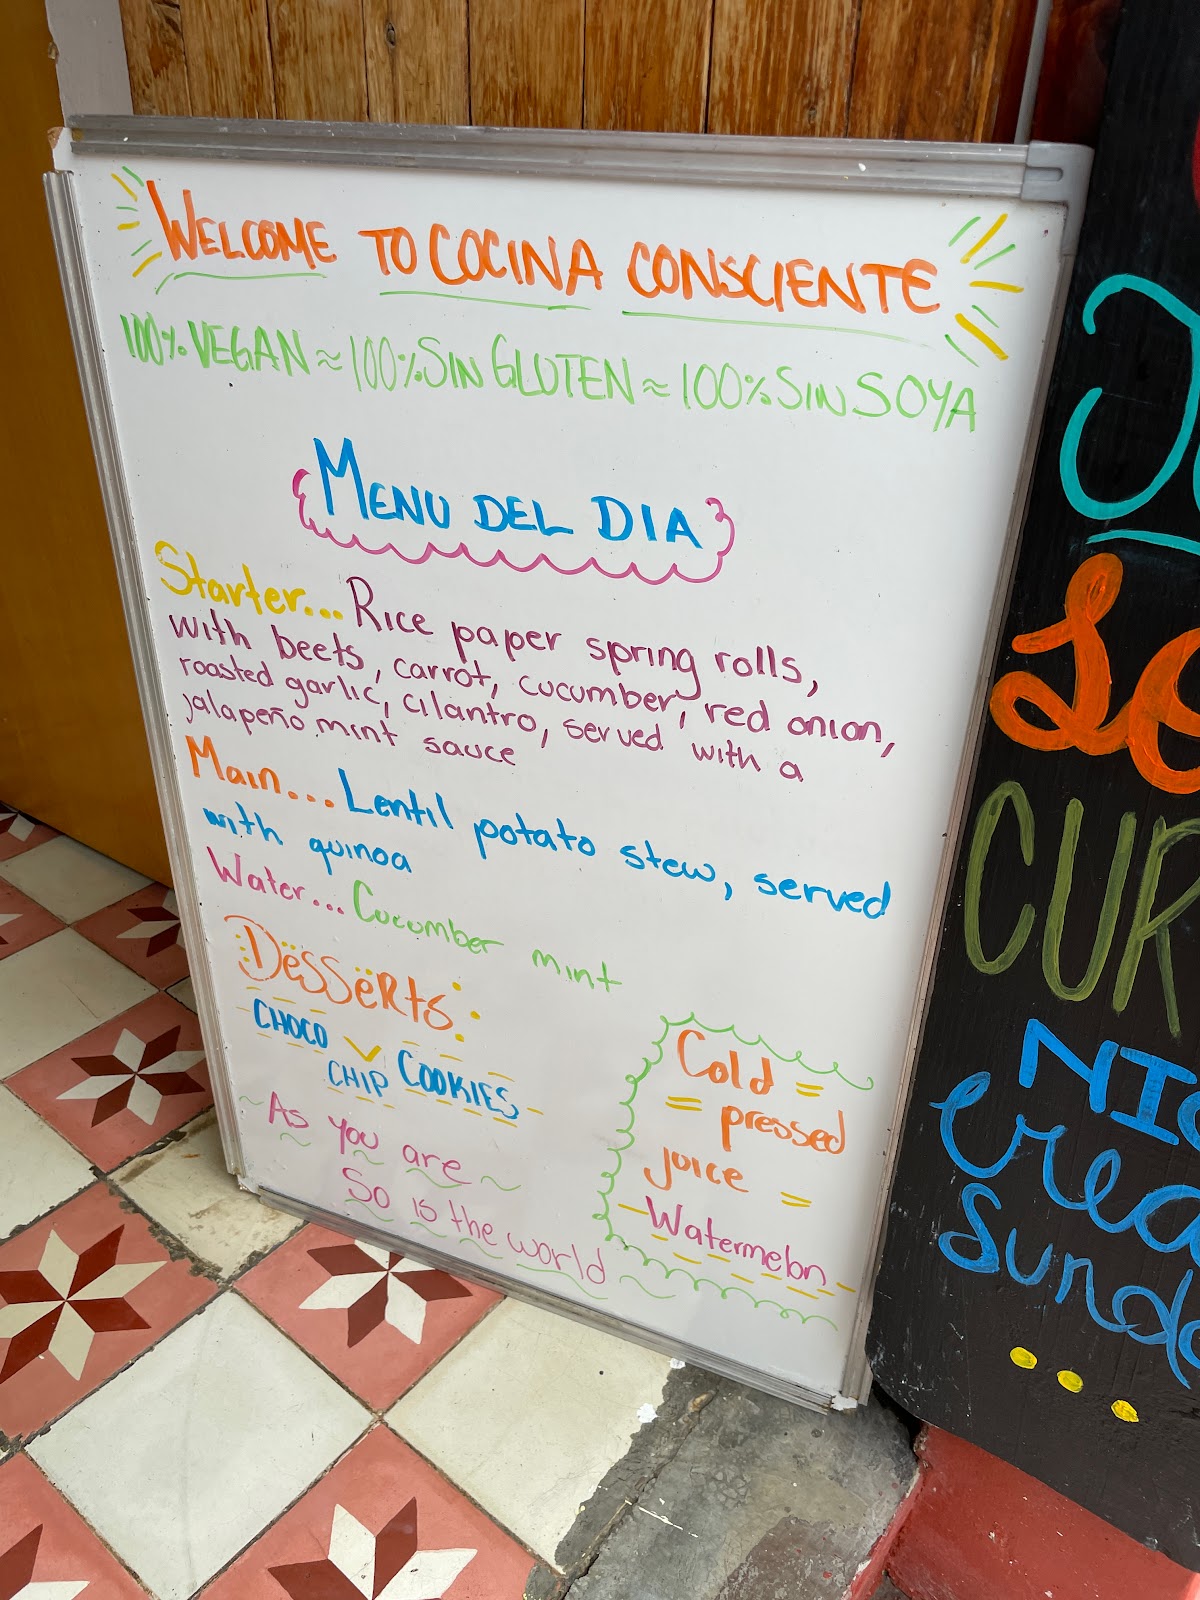 WELCOME TO COCINA CONSCIENTE
100% VEGAN ≈ 100% SIN GLUTEN ≈ 100% SIN SOYA
MENU DEL DIA
Starter... Rice paper spring rolls,
with beets, carrot, cucumber, red onion,
roasted garlic, cilantro, served with a
jalapeño mint sauce
Main... Lentil potato stew, served
with quinoa
Water... Cucumber mint
DËSSËRtS
CHOCO
CHIP COOKIES
As you are
So is the world
Cold
pressed
juice
Watermelon
CUR